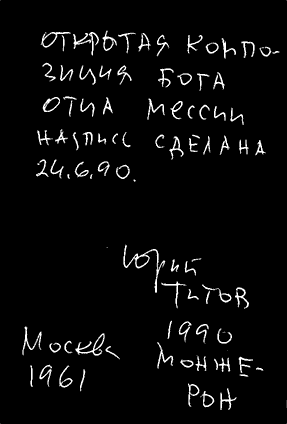 ОТКРЫТАЯ КОМПО-
ЗИЦИЯ БОГА
ОТЦА МЕССИИ
НАДПИСЬ СДЕЛАНА
24.6.90.
Юрий
ТИТОВ
1990
МОНЖЕ-
РОН
Москва
1961